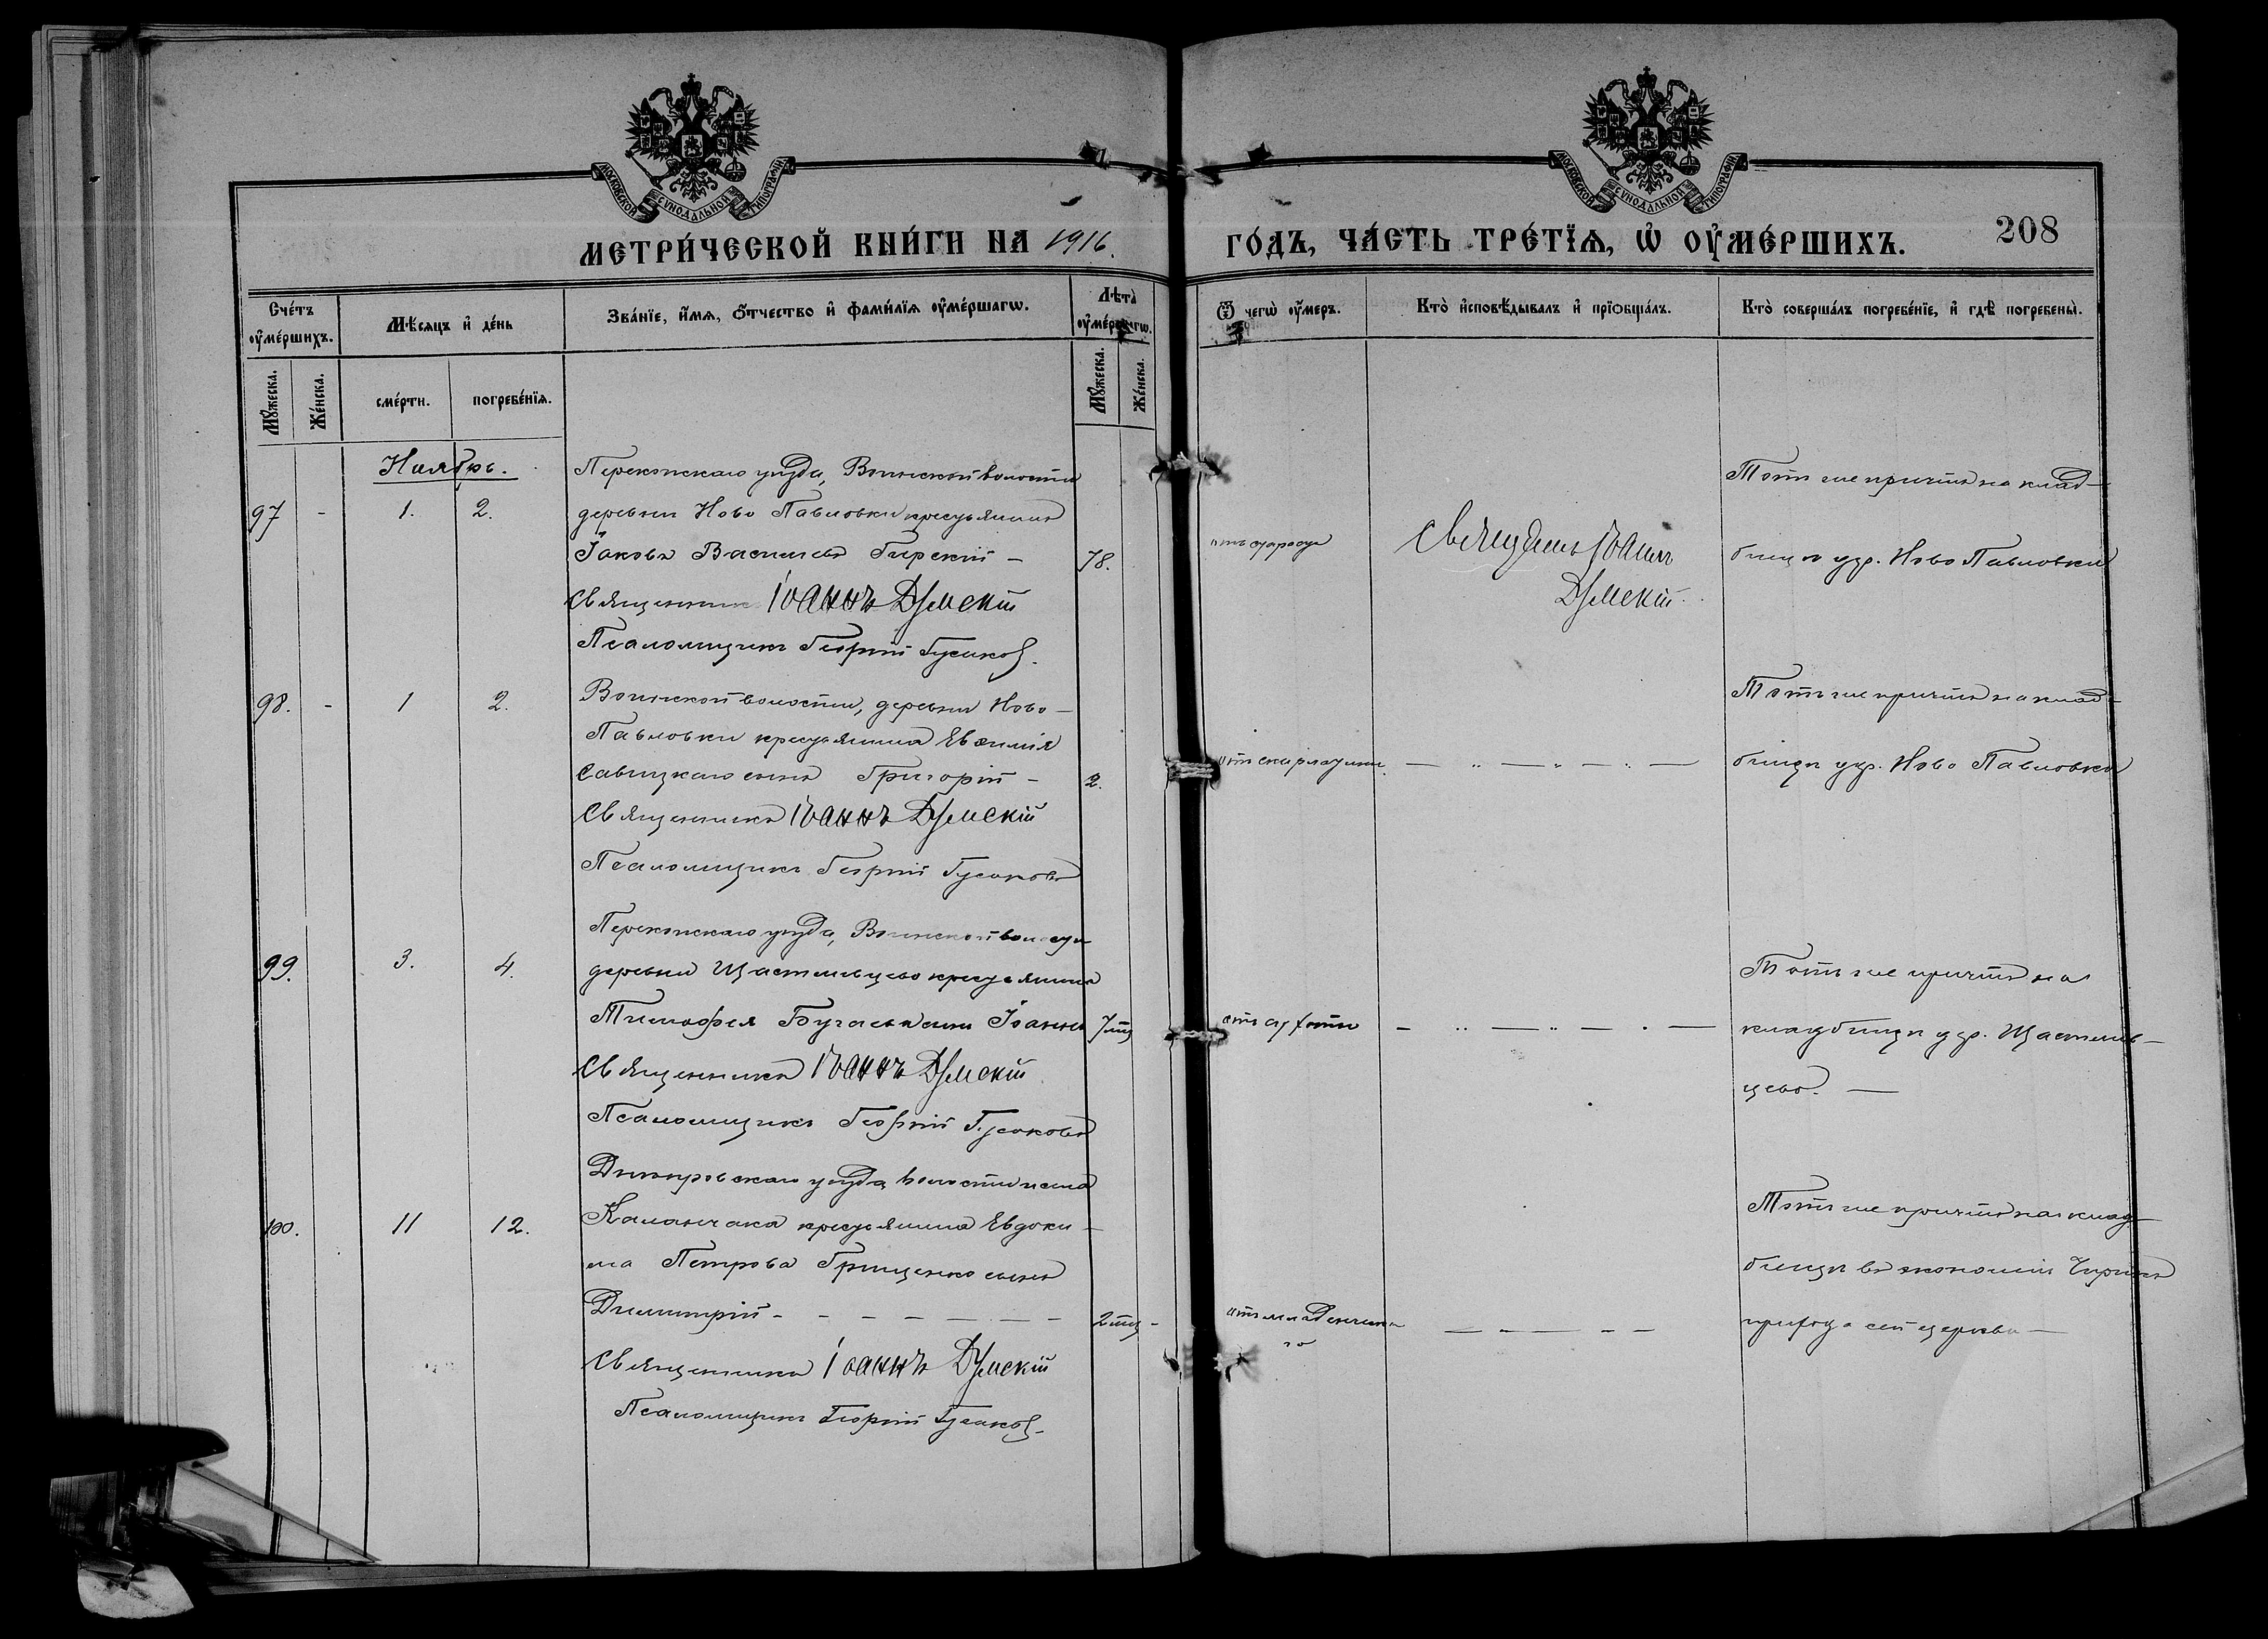 МОСКОВСКОЙ СѴНОДАЛЬНОЙ ТИПОГРАФІИ
МОСКОВСКОЙ СѴНОДАЛЬНОЙ ТИПОГРАФІИ
МЕТРИ́ЧЕСКОЙ КНИ́ГИ НА 1916. ГО́ДЪ, ЧА́СТЬ ТРЕ́ТЇѦ, Ѡ҆ ОУ҆МЕ́РШИХЪ.
208
Сче́тъ оу҆ме́ршихъ.
Мꙋ́жеска.
Же́нска.
Мѣ́сяцъ и҆ де́нь
сме́рти.
погребе́нїѧ.
Зва́нїе, и҆́мѧ, ѻ҆́тчество и҆ фами́лїѧ оу҆ме́ршагѡ.
Лѣ́та оу҆ме́ршагѡ.
Мꙋ́жеска.
Же́нска.
Ѿ чегѡ̀ оу҆́меръ.
Кто̀ и҆сповѣ́дывалъ и҆ прїѡбща́лъ.
Кто̀ соверша́лъ погребе́нїе, и҆ гдѣ̀ погребены̀.
Ноябрь.
97 - 1. 2.
Перекопскаго уѣзда, Воинской волости
деревни Ново Павловки крестьянинъ
Іаковъ Васильевъ Гирскій - 78.
Священникъ Іоаннъ Думскій
Псаломщикъ Георгій Гусаков.
отъ старости
Священникъ Іоаннъ
Думскій.
Тотъ же причтъ на клад-
бищѣ дер. Ново Павловки
98. - 1 2.
Воинской волости, деревни Ново-
Павловки крестьянина Евѳимія
Савицкаго сынъ Григорій - 2.
Священникъ Іоаннъ Думскій
Псаломщикъ Георгій Гусаковъ
отъ скарлатины
Тотъ же причтъ на клад-
бищѣ дер. Ново Павловки
99. 3. 4.
Перекопскаго уѣзда, Воинской волости
деревни Щастливцево крестьянина
Тимофея сынъ Іоаннъ 7 мц
Священникъ Іоаннъ Думскій
Псаломщикъ Георгій Гусаковъ
Тотъ же причтъ на
кладбищѣ дер. Щастлив-
цево. —
100. 11 12.
Днѣпровскаго уѣзда, волости и села
Каланчака крестьянина Евдоки-
ма Петрова Грищенко сынъ
Димитрій - - - - - - - 2 мц -
Священникъ Іоаннъ Думскій
Псаломщикъ Георгій Гусаков.
отъ младенческа
го
Тотъ же причтъ на клад-
бищѣ въ экономіи Чирикъ
прихода сей церкви —